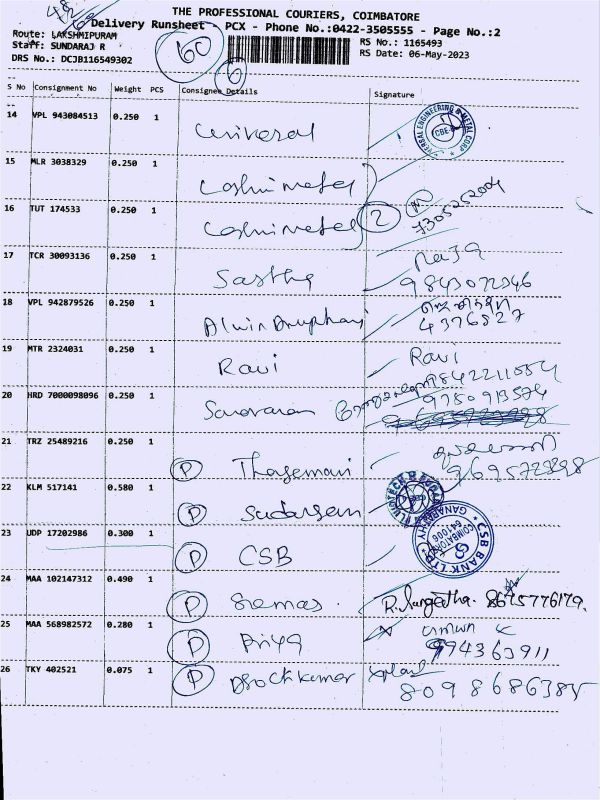 THE PROFESSIONAL COURIERS, COIMBATORE
Delivery Runsheet - PCX - Phone No.:0422-3505555 - Page No.:2
Route: LAKSHMIPURAM
RS No.: 1165493
Staff: SUNDARAJ R
60
RS Date: 06-May-2023
DRS No.: DCJB116549302
6
S No Consignment No Weight PCS Consignee Details Signature
14 VPL 943084513 0.250 1
Universal
CBE
15 MLR 3038329 0.250 1
Lashmi metal
16 TUT 174533 0.250 1
Lashmi metal 2 7305252004
17 TCR 30093136 0.250 1
Raja
Sastha 9843072346
18 VPL 942879526 0.250 1
4376527
19 MTR 2324031 0.250 1
Ravi Ravi
9842211054
20 HRD 7000098096 0.250 1
9750913574
Saravanan
21 TRZ 25489216 0.250 1
P Thasemani 9695723898
22 KLM 517141 0.580 1
P Sudarsan
23 UDP 17202986 0.300 1
P CSB
CSB BANK LTD
GANAPATHY
COIMBATORE
641006
24 MAA 102147312 0.490 1
P Sremas. R. Sangeetha. 8675776179.
25 MAA 568982572 0.280 1
P Priya 994363911
26 TKY 402521 0.075 1
P 8098686385